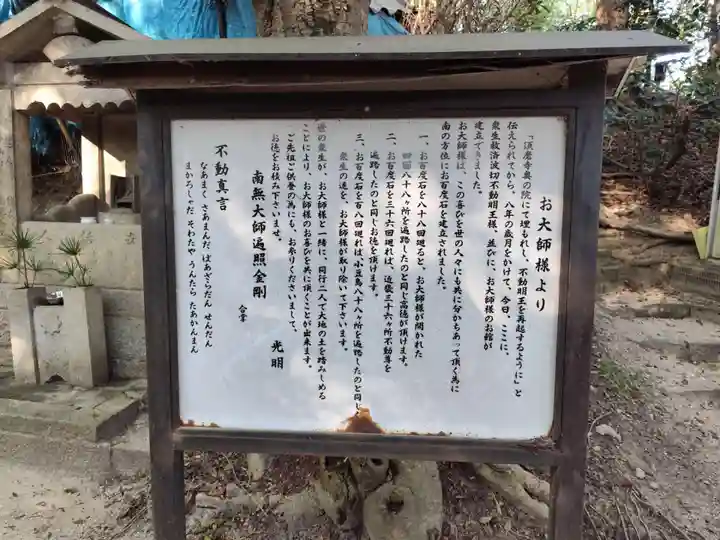 お大師様より
「須磨寺奥の院にて埋もれし、不動明王を再起するように」と
伝えられてから、八年の歳月をかけて、今日、ここに、
衆生救済波切不動明王様、並びに、お大師様のお館が
建立できました。
お大師様は、この喜びを世の人々にも共に分かちあって頂く為に
南の方位にお百度石を建立されました。
一、お百度石を八十八回廻ると、お大師様が開かれた
四国八十八ヶ所を遍路したのと同じ高徳が頂けます。
二、お百度石を三十六回廻れば、近畿三十六ヶ所不動尊を
遍路したのと同じお徳を頂けます。
三、お百度石を百八回廻れば、小豆島八十八ヶ所を遍路したのと同じ
衆生の迷を、お大師様が取り除いて下さいます。
世の衆生が、お大師様と一緒に、同行二人で大地の土を踏みしめる
ことにより、お大師様のお喜びを共に頂くことが出来ます。
ご先祖ご供養の為にも、お参りくださいまして、
お徳をお積み下さいませ。
光明
南無大師遍照金剛
合掌
不動真言
なあまく さあまんだ ばあざらだん せんだん
まかろしゃだ そわたや うんたら たあかんまん